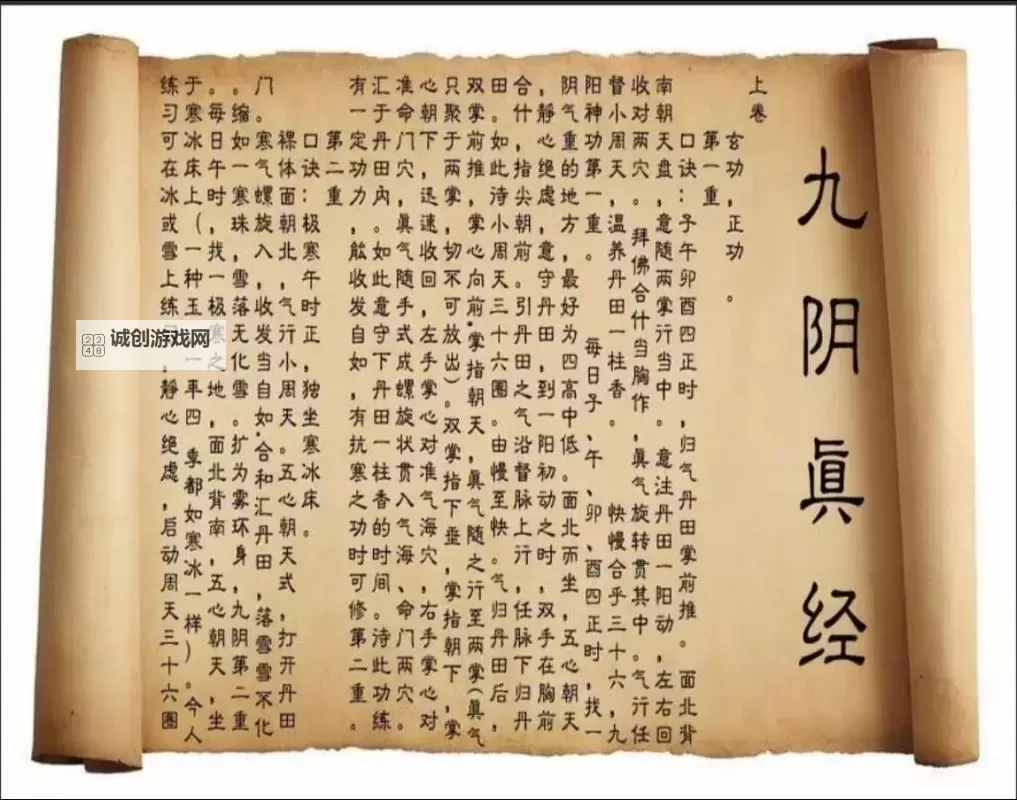 九阴眞经
上卷
玄功，正功。
第一重
口诀：子午卯酉四正时，归气丹田掌前推。面北背
南朝天盘，意随两掌行当中。意注丹田一阳动，左右回
收对两穴。拜佛合什当胸作，眞气旋转贯其中。气行任
督小周天，温养丹田一柱香。快慢合乎三十六，九
阳神功第一重。每日子、午、卯、酉四正时，找一
阴气重的地方，最好为四高中低。面北而坐，五心朝天
，静心绝虑，意守丹田，到一阳初动之时，双手在胸前
合什，指尖朝前。引丹田之气沿督脉上行，任脉下归丹
田。如此待小周天三十六圈。由慢至快。气归丹田后，
双掌前推，掌心向前，掌指朝天，眞气随之行至两掌（眞气
只聚于两掌，切不可放出）。双掌指下垂，掌指朝下，掌
心朝下，迅速收回，左手掌心对准气海穴，右手掌心对
准命门穴，眞气随手式成螺旋状贯入气海、命门两穴。
汇于丹田内。如此意守下丹田一柱香的时间。待此功练
有一定功力，能收发自如，有抗寒之功时可修第二重。
第二重
口诀：极寒午时正，独坐寒冰床。
裸体面朝北，气行小周天。五心朝天式，打开丹田
门。寒气螺旋入，收发当自如，合和汇丹田，落雪雪不化
。缩如一寒珠，雪落无化雪。扩为雾环身，九阴第二重
。每日午时，找一极寒之地，面北背南，五心朝天，坐
于寒冰床上（一种玉一年四季都如寒冰一样）。今人
练习可在冰或雪上练，静心绝虑，启动周天三十六圈
诚创游戏网